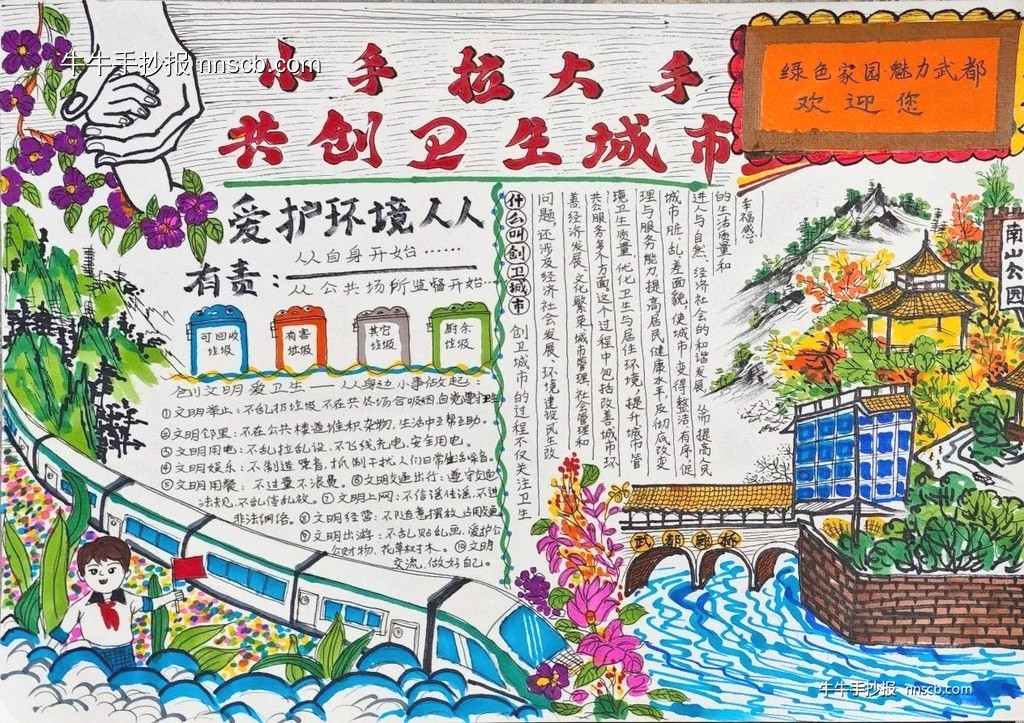 牛牛手抄报 nnscb.com
小手拉大手
共创卫生城市
绿色家园·魅力武都
欢迎您
爱护环境人人
从自身开始……
有责：
从公共场所监督开始…
可回收
垃圾
有害
垃圾
其它
垃圾
厨余
垃圾
创文明爱卫生——从身边小事做起：
①文明举止：不乱扔垃圾不在共公场合吸烟
②文明邻里：不在公共楼道堆积杂物，生活中互帮互助。
③文明用电：不乱拉乱设，不飞线充电，安全用电。
④文明娱乐：不制造噪音，抵制干扰人们日常生活噪音。
⑤文明用餐：不过量不浪费。⑥文明交通出行：遵守交通
法规，不乱停乱放。⑦文明上网：不信谣传谣，不进
非法网络。⑧文明经营：不随意摆放，占用交通
⑨文明出游：不乱贴乱画，爱护公
公财物，花草树木。⑩文明
交流，做好自己。
什么叫创卫城市
创卫城市的过程不仅关注卫生
问题，还涉及经济社会发展、环境建设民生改
善，经济发展、文化繁荣、城市管理、社会管理和
公共服务等多个方面。这个过程中包括改善城市环
境卫生质量，优化卫生与居住环境，提升城市管
理与服务能力，提高居民健康水平，及彻底改变
城市脏、乱、差面貌，使城市变得整洁、有序，促
进人与自然、经济社会的和谐发展，从而提高人民
的生活质量和
幸福感。
南山公园
武都廊桥
牛牛手抄报 nnscb.com